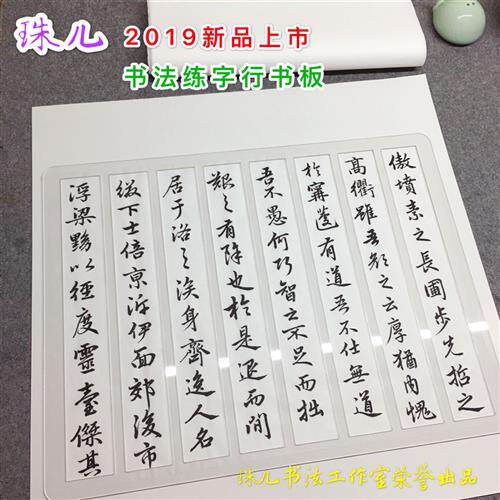 珠儿
2019新品上市
书法练字行书板
傲墳素之長圃步先哲之
高衢雖吾顏之云厚猶內愧
於寗蘧有道吾不仕無道
吾不愚何巧智之不足而拙
艱之有餘也於是退而閒
居于洛之涘身齊逸人名
綴下士倍京泝伊面郊後市
浮梁黝以徑度靈臺傑其
珠儿书法工作室荣誉出品